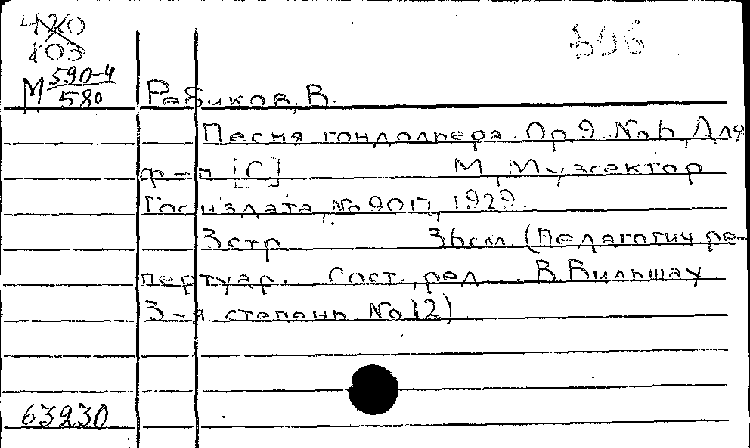 420
103
М 590-4/580
Ребиков, В.
Песня гондольера. Op. 9. No 6, Для
ф-п [C] М., Музсектор
Госиздата, No 9017, 1929.
3 стр. 36 см. (Педагогич. ре-
пертуар. Сост., ред. В. Вильшау
3-я степень No 12)
63230